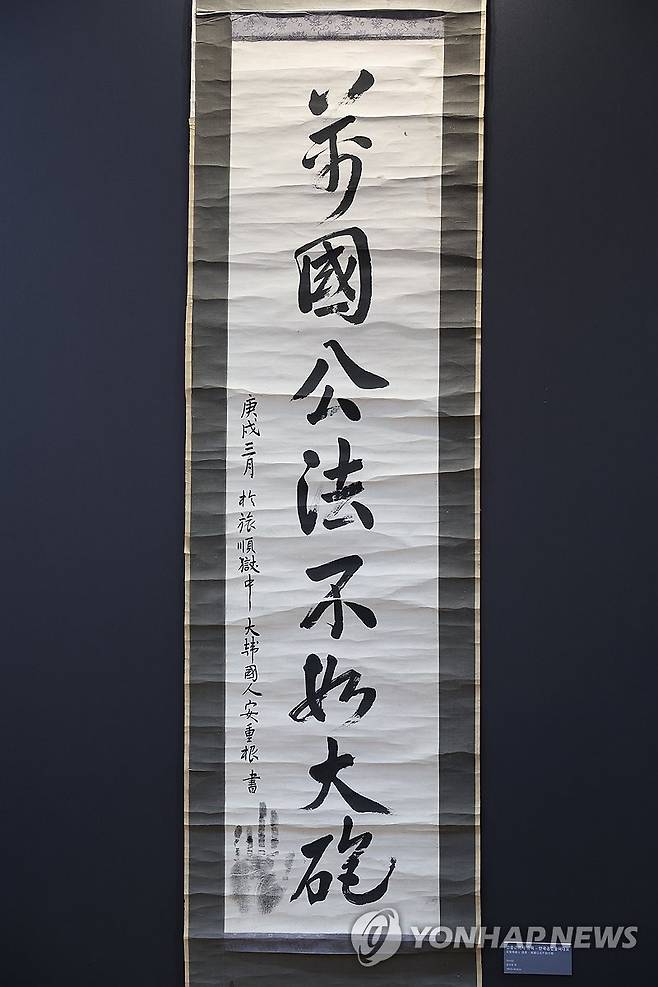 萬國公法不如大砲
庚戌三月 於旅順獄中 大韓國人 安重根 書
YONHAP NEWS